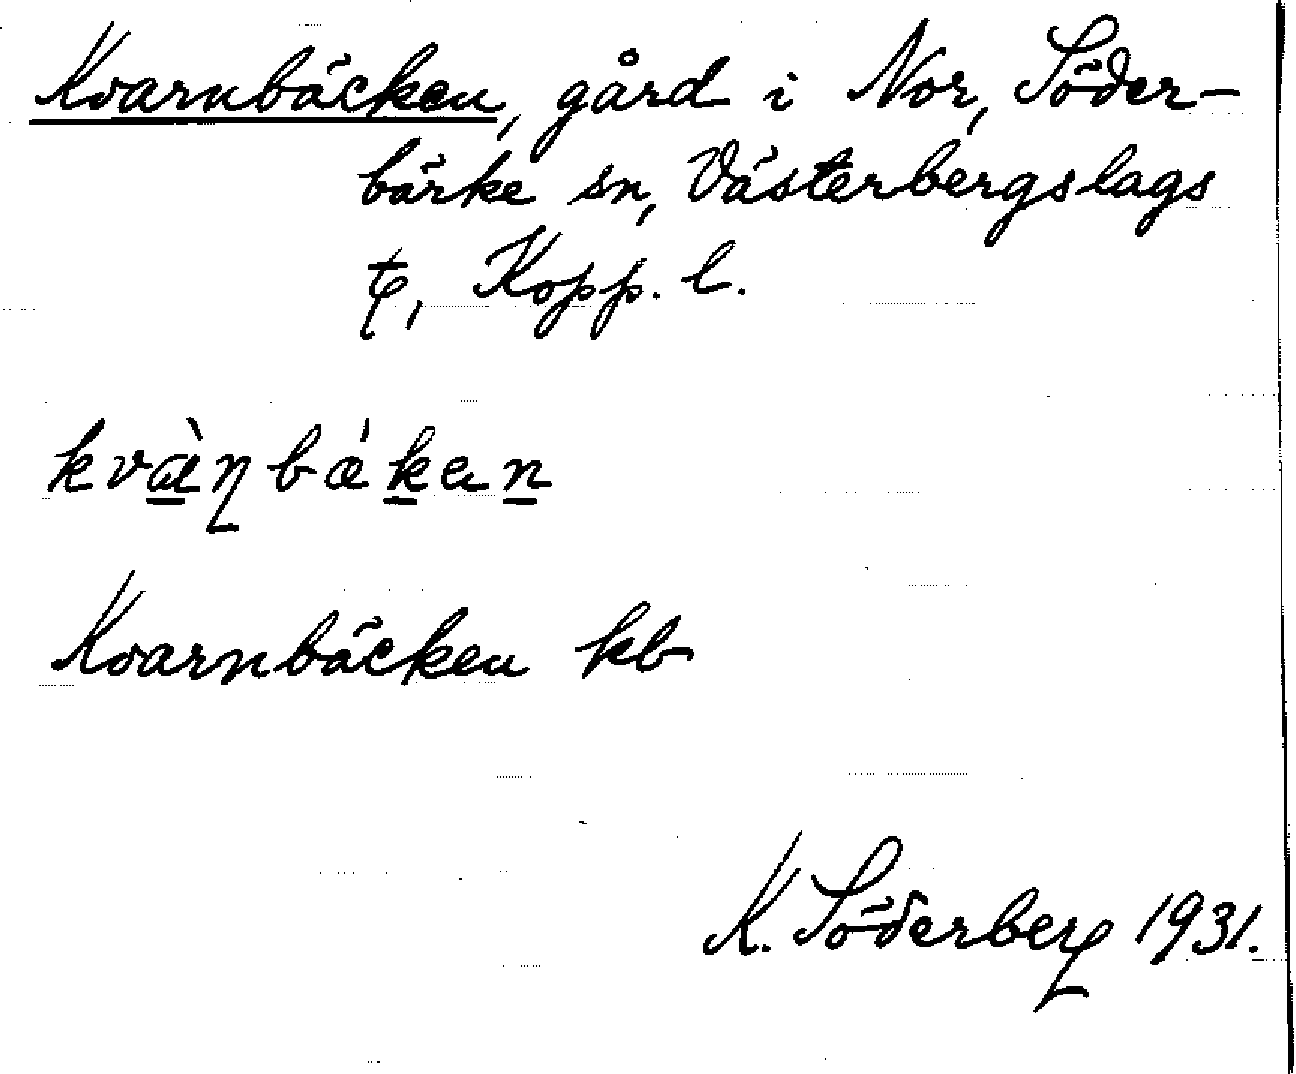 Kvarnbäcken, gård i Nor, Söder-
bärke sn, Västerbergslags
Kopp. l.
Kvarnbäcken kb
K. Söderberg 1931.